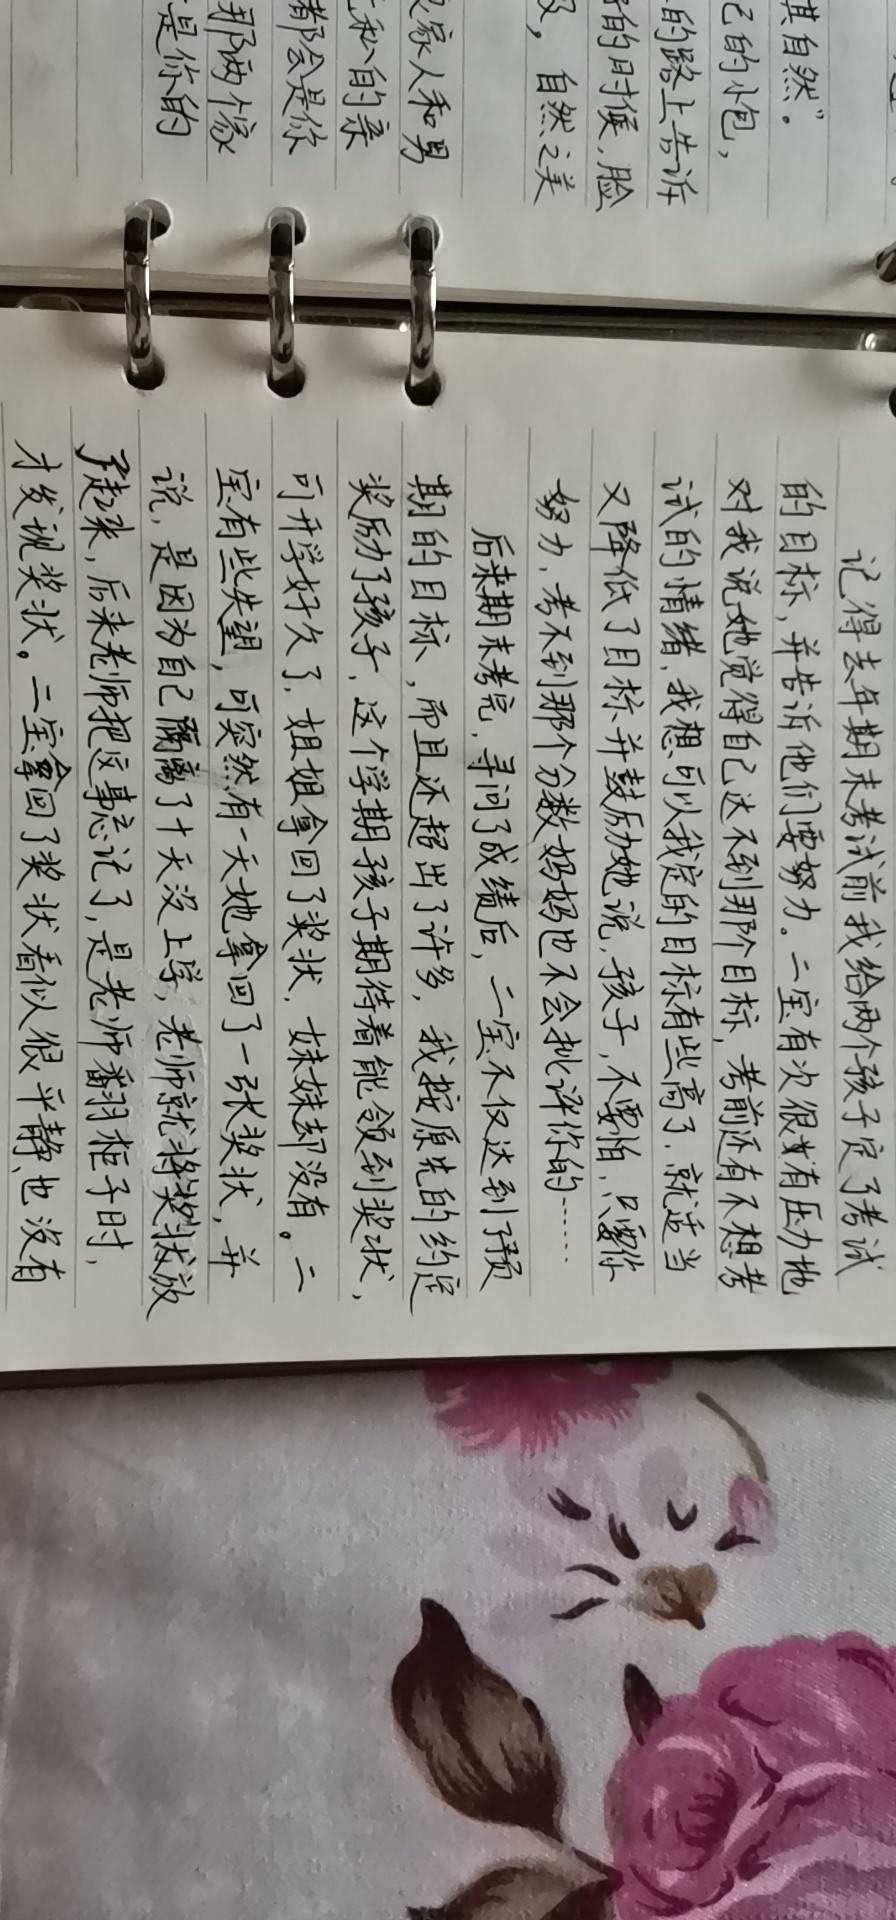 其自然”。
己的小包，
的路上告诉
的时候，脸
及，自然之美
家人和男
私的亲
都会是你
那两个家
是你的
记得去年期末考试前我给两个孩子定了考试
的目标，并告诉他们要努力。二宝有次很有压力地
对我说她觉得自己达不到那个目标，考前还有不想考
试的情绪，我想可以我定的目标有些高了，就适当
又降低了目标并鼓励她说，孩子，不要怕，只要你
努力，考不到那个分数妈妈也不会批评你的……
后来期末考完，寻问了成绩后，二宝不仅达到了预
期的目标，而且还超出了许多，我按原先的约定
奖励了孩子，这个学期孩子期待着能领到奖状，
可开学好久了，姐姐拿回了奖状，妹妹却没有。二
宝有些失望，可突然有一天她拿回了一张奖状，并
说，是因为自己隔离了十天没上学，老师就将奖状放
了起来，后来老师把这事忘记了，是老师翻羽柜子时，
才发现奖状。二宝拿回了奖状看似很平静，也没有